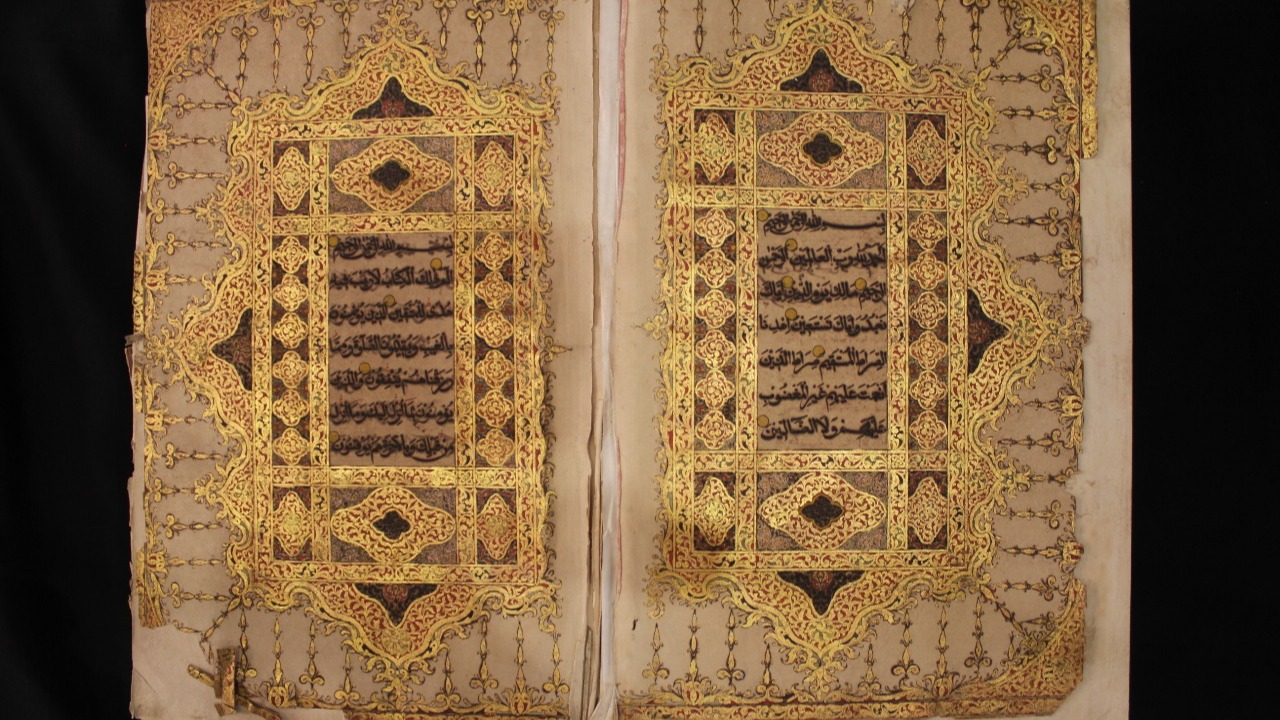 بسم الله الرحمن الرحيم
الحمد لله رب العالمين الرحمن
الرحيم ملك يوم الدين إياك
نعبد وإياك نستعين اهدنا
الصراط المستقيم صراط الذين
أنعمت عليهم غير المغضوب
عليهم ولا الضالين
بسم الله الرحمن الرحيم
الم ذلك الكتاب لا ريب فيه
هدى للمتقين الذين يؤمنون
بالغيب ويقيمون الصلوة ومما
رزقناهم ينفقون والذين
يؤمنون بما أنزل إليك وما أنزل
من قبلك وبالآخرة هم يوقنون